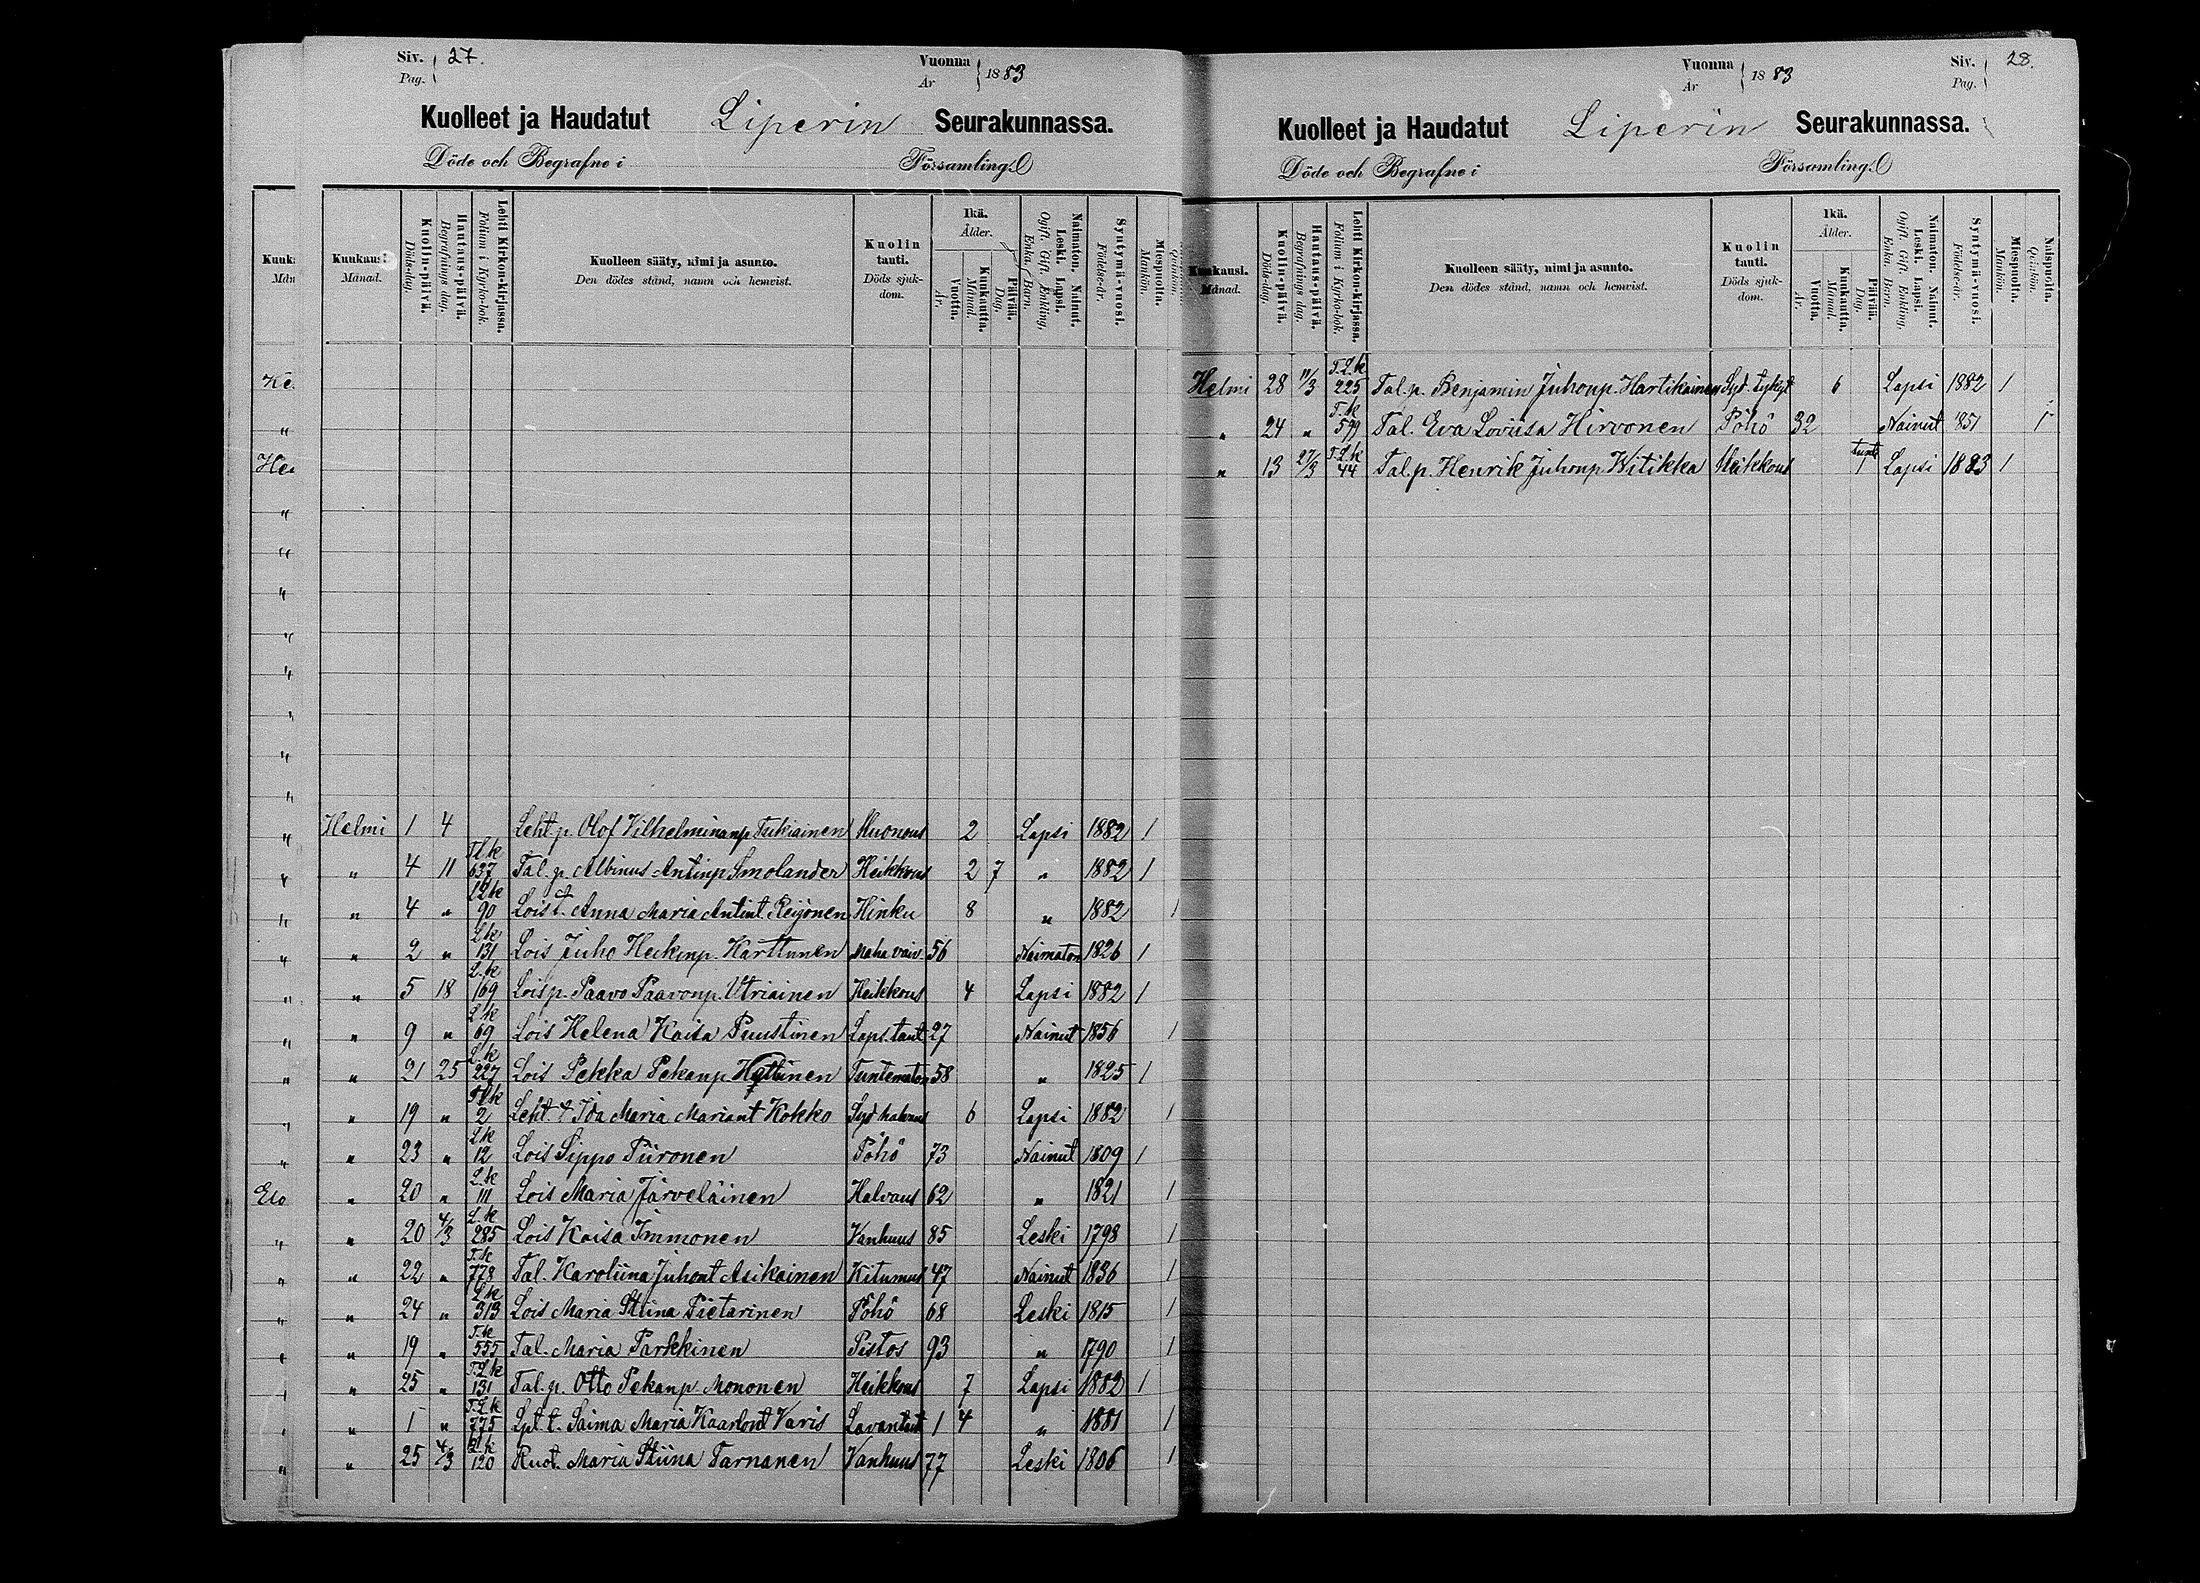 Siv. 27.
Pag.
Vuonna 1883
År
Kuolleet ja Haudatut Liperin Seurakunnassa.
Döde och Begrafne i Församling.
Kuukausi. Månad.
Kuolin-päivä. Döds-dag.
Hautaus-päivä. Begrafnings dag.
Lehti Kirkon-kirjassa. Folium i Kyrko-bok.
Kuolleen sääty, nimi ja asunto. Den dödes stånd, namn och hemvist.
Kuolin tauti. Döds sjukdom.
Ikä. Ålder.
Vuotta. År. Kuukautta. Månad. Päivää. Dag.
Naimaton. Nainut. Leski. Lapsi. Ogift. Gift. Enkling, Enka. Barn.
Syntymä-vuosi. Födelse-år.
Miespuolta. Mankön.
Helmi 1 4 Leht.p. Olof Vilhelminanp Tsikiainen Kuonous 2 Lapsi 1882 1
" 4 11 T.L.k 637 Tal.p. Albinus Antinp Smolander Heikkous 2 7 " 1882 1
" 4 " 90 Lois t. Anna Maria Antint Reijonen Hinku 8 " 1882 1
" 2 " L.k 131 Lois Juho Heikinp. Karttunen Maha vaiv. 56 Naimaton 1826 1
" 5 18 L.k 169 Lois p. Paavo Paavonp. Utriainen Heikkous 4 Lapsi 1882 1
" 9 " L.k 69 Lois Helena Kaisa Puustinen Laps. taut 27 Nainut 1856 1
" 21 25 L.k 227 Lois Pekka Pekanp Hattunen Tuntematon 58 " 1825 1
" 19 " T.L.k 2 Leht. t Ida Maria Mariant Kokko Syd halvaus 6 Lapsi 1882 1
" 23 " L.k 12 Lois Sippo Piironen Pöhö 73 Nainut 1809 1
" 20 " L.k 111 Lois Maria Järveläinen Halvaus 62 " 1821 1
" 20 4/3 L.k 285 Lois Kaisa Immonen Vanhuus 85 Leski 1798 1
" 22 " T.k 778 Tal. Karoliina Juhont Asikainen Kitumus 47 Nainut 1836 1
" 24 " L.k 313 Lois Maria Stiina Pietarinen Pöhö 68 Leski 1815 1
" 19 " T.k 555 Tal. Maria Parkkinen Pistos 93 " 1790 1
" 25 " T.L.k 131 Tal.p. Otto Pekanp Mononen Heikkous 7 Lapsi 1882 1
" 1 " T.L.k 775 Lpt. t. Saima Maria Kaarlont Varis Lavantaut 1 4 " 1881 1
" 25 4/3 L.k 120 Ruot. Maria Stiina Tarnanen Vanhuus 77 Leski 1806 1
Siv. 28.
Pag.
Vuonna 1883
År
Kuolleet ja Haudatut Liperin Seurakunnassa.
Döde och Begrafne i Församling.
Kuukausi. Månad.
Kuolin-päivä. Döds-dag.
Hautaus-päivä. Begrafnings dag.
Lehti Kirkon-kirjassa. Folium i Kyrko-bok.
Kuolleen sääty, nimi ja asunto. Den dödes stånd, namn och hemvist.
Kuolin tauti. Döds sjukdom.
Ikä. Ålder.
Vuotta. År. Kuukautta. Månad. Päivää. Dag.
Naimaton. Nainut. Leski. Lapsi. Ogift. Gift. Enkling, Enka. Barn.
Syntymä-vuosi. Födelse-år.
Miespuolta. Mankön.
Naispuolta. Qvinkön.
Helmi 28 11/3 T.L.k 225 Tal.p. Benjamin Juhonp. Hartikainen Syd. tykyt 6 Lapsi 1882 1
" 24 " T.k 599 Tal. Eva Loviisa Hirvonen Pöhö 32 Nainut 1851 1
" 13 27/3 T.L.k 44 Tal.p. Henrik Juhonp Witikka Heikkous tunt 1 Lapsi 1883 1